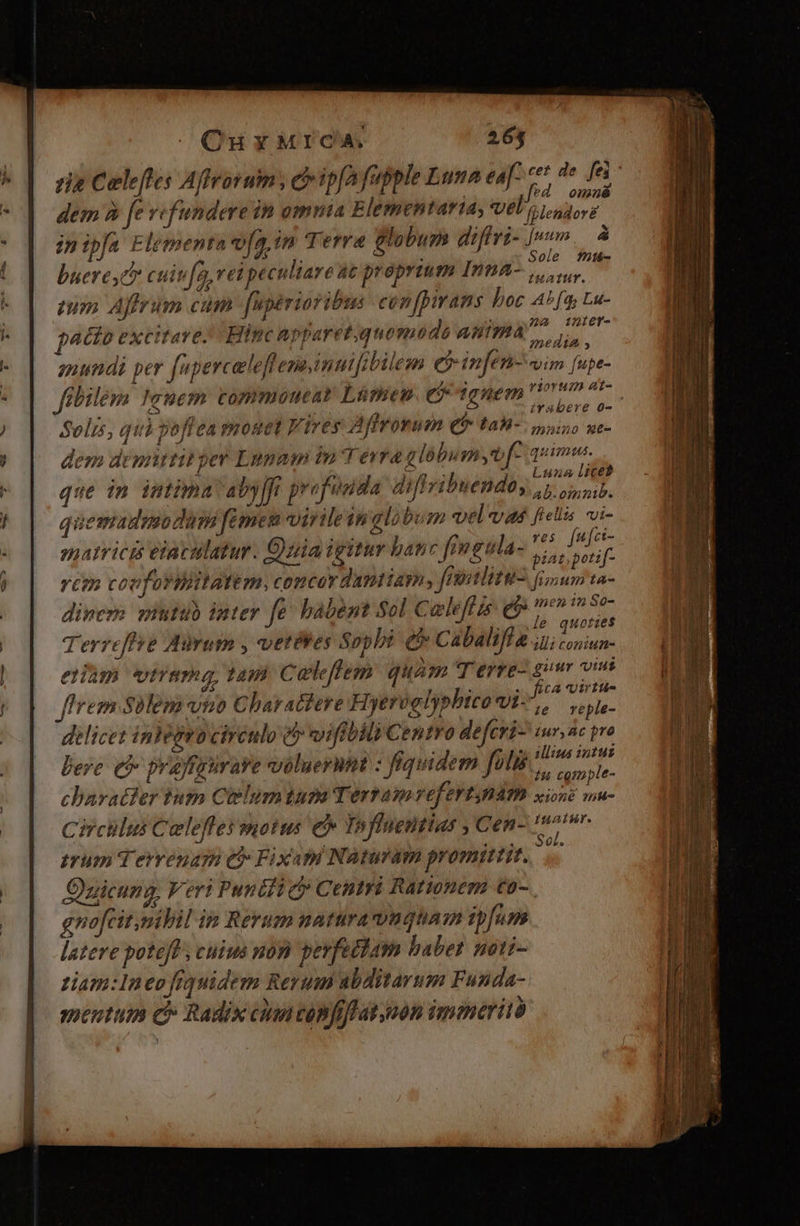 CHYMICA. 265
tiæ Cœlestes Astrorum, & ipsa supple Luna eas-
dem à se refundere in omnia Elementaria, vel
in ipsa Elementa vsq; in Terræ globum distri-
buere, & cuiusq; rei peculiare ac proprium Inna-
tum Astrum cum superioribus conspirans hoc
pacto excitare. Hinc apparet, quomodo anima
mundi per supercœlestem, inuisibilem & insen-
sibilem Ignem commoueat Lumen & ignem
Solis, qui postea mouet Vires Astrorum & tan-
dem demittit per Lunam in Terræ globum, vs-
que in intima abyssi profunda distribuendo,
quemadmodum semen virile in globum vel vas
matricis eiaculatur. Quia igitur hanc singula-
rem conformitatem, concordantiam, similitu-
dinem mutuò inter se habent Sol Cœlestis &
Terrestre Aurum, veteres Sophi & Cabalistæ
etiam vtrumq; tam Cœlestem quàm Terre-
strem Solem vno Charactere Hyeroglyphico vi-
delicet integro circulo & visibili Centro descri-
bere & præfigurare voluerunt: siquidem solis
character tum Cœlum tum Terram refert, nam
Circulus Cœlestes motus & Influentias, Cen-
trum Terrenam & Fixam Naturam promittit.
Quicunq; Veri Puncti & Centri Rationem co-
gnoscit, nihil in Rerum natura vnquam ipsum
latere potest, cuius non perfectam habet noti-
tiam: In eo siquidem Rerum abditarum Funda-
mentum & Radix cùm consistat, non immeritò
cet de se
sed omnē
splendorē
suum à
Sole mu-
tuatur.
Absq; Lu-
na inter-
media,
vim supe-
riorum at-
trahere o-
mnino ne-
quimus.
Luna licet
ab omnib.
stellis vi-
res susci-
piat, potis-
simum ta-
men in So-
le quoties
illi coniun-
gitur vini
fica virtu-
te reple-
tur, ac pro
illius intus
tu comple-
xionē mu-
tuatur.
Sol.